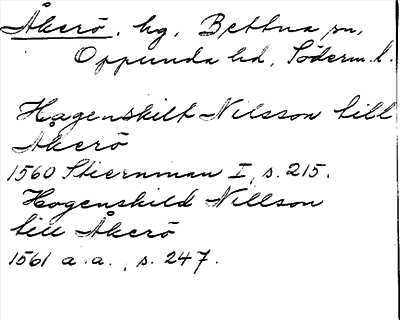 Åkerö, hg, Bettna sn,
Oppunda hd, Söderm. l.
Hagenskilt Nilsson till
Akerö
1560 Stiernman I, s. 215.
Hogenskild Nillson
till Åkerö
1561 a.a., s. 247.